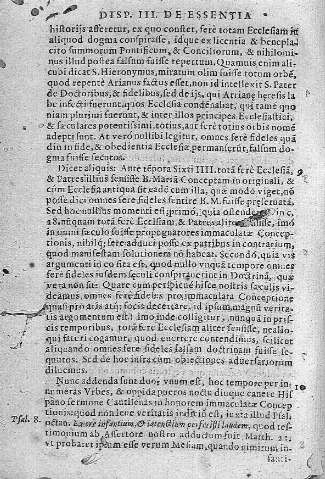 DISP. III. DE ESSENTIA
historijs afferetur, ex quo constet, ferè totam Ecclesiam in
aliquod dogma conspirasse, idque ex licentia & beneplacito
summorum Pontificum, & Conciliorum, & nihilominus
illud postea falsum fuisse repertum. Quamuis enim alicubi
dicat S. Hieronymus, miratum olim fuisse totum orbē,
quod repentè Arianus factus esset, non id intellexit S. Pater
de Doctoribus, & fidelibus, sed de ijs, qui Ariana heresis labe
infecti fuerunt, quos Ecclesia condēnabat, qui tamē quoniam
plurimi fuerunt, & inter illos principes Ecclesiastici,
& sæculares potentissimi, totius, aut ferè totius orbis nomē
adepti sunt. At verò nullibi legitur, omnes ferè fideles qui
dio in fide, & obedientia Ecclesiæ permanserūt, falsum dogma
fuisse secutos.
Dicet aliquis: Ante tēpora Sixti IIII. totā ferè Ecclesiā,
& Patres illius sensisse B. Mariā Conceptam in originali, &
cūm Ecclesia antiqua sit eadē cum illa, quæ modò viget,
posse dici omnes ferè fideles sentire B. M. fuisse præseruatā.
Sed hoc nullius momenti est, primò, quia ostendetur in c.
a 8. nequam totā ferè Ecclesiam, & Patres aliter sensisse, imò
in omni sæculo fuisse propugnatores immaculatæ Conceptionis,
nihilq; ferè adduci posse ex patribus in contrarium,
quod manifestam solutionem nō habeat. Secundò, quia vis
argumenti in eo sita est, quod nullo vnquā tempore omnes
ferè fideles eiusdem sæculi conspirauerint in Doctrinā, quæ
vera non sit. Quare cum perspicuè hisce nostris sæculis videamus,
omnes ferè fideles pro immaculata Conceptione
quasi pro aris atq; focis decertare, id ipsum magni veritatis
argumentum est: Imò inde colligitur, nunquā in priscis
temporibus, totā ferè Ecclesiam aliter sensisse, nealioqui
fateri cogamur, quod euertere contendimus, scilicet
aliquando omnes ferè fideles falsam doctrinam fuisse sequutos.
Sed de hoc infra cum obiectiones aduersariorum
diluemus.
Nunc addenda sunt duo; vnum est, hoc tempore per innumeras
Vrbes, & oppida pueros noctu diuque canere Hispano
sermone Cantilenas in honorem immaculatæ Conceptionis;
quod non leue veritatis indiciū est, iuxta illud Psal.
Psal. 8. nictan. Ex ore infantium, & lactentium perfecisti laudem, quod testimonium
ab Assertore nostro adductum fuit Matth. 21.
vt probaret ipsum esse verum Messiam, quando nimirum infanti-